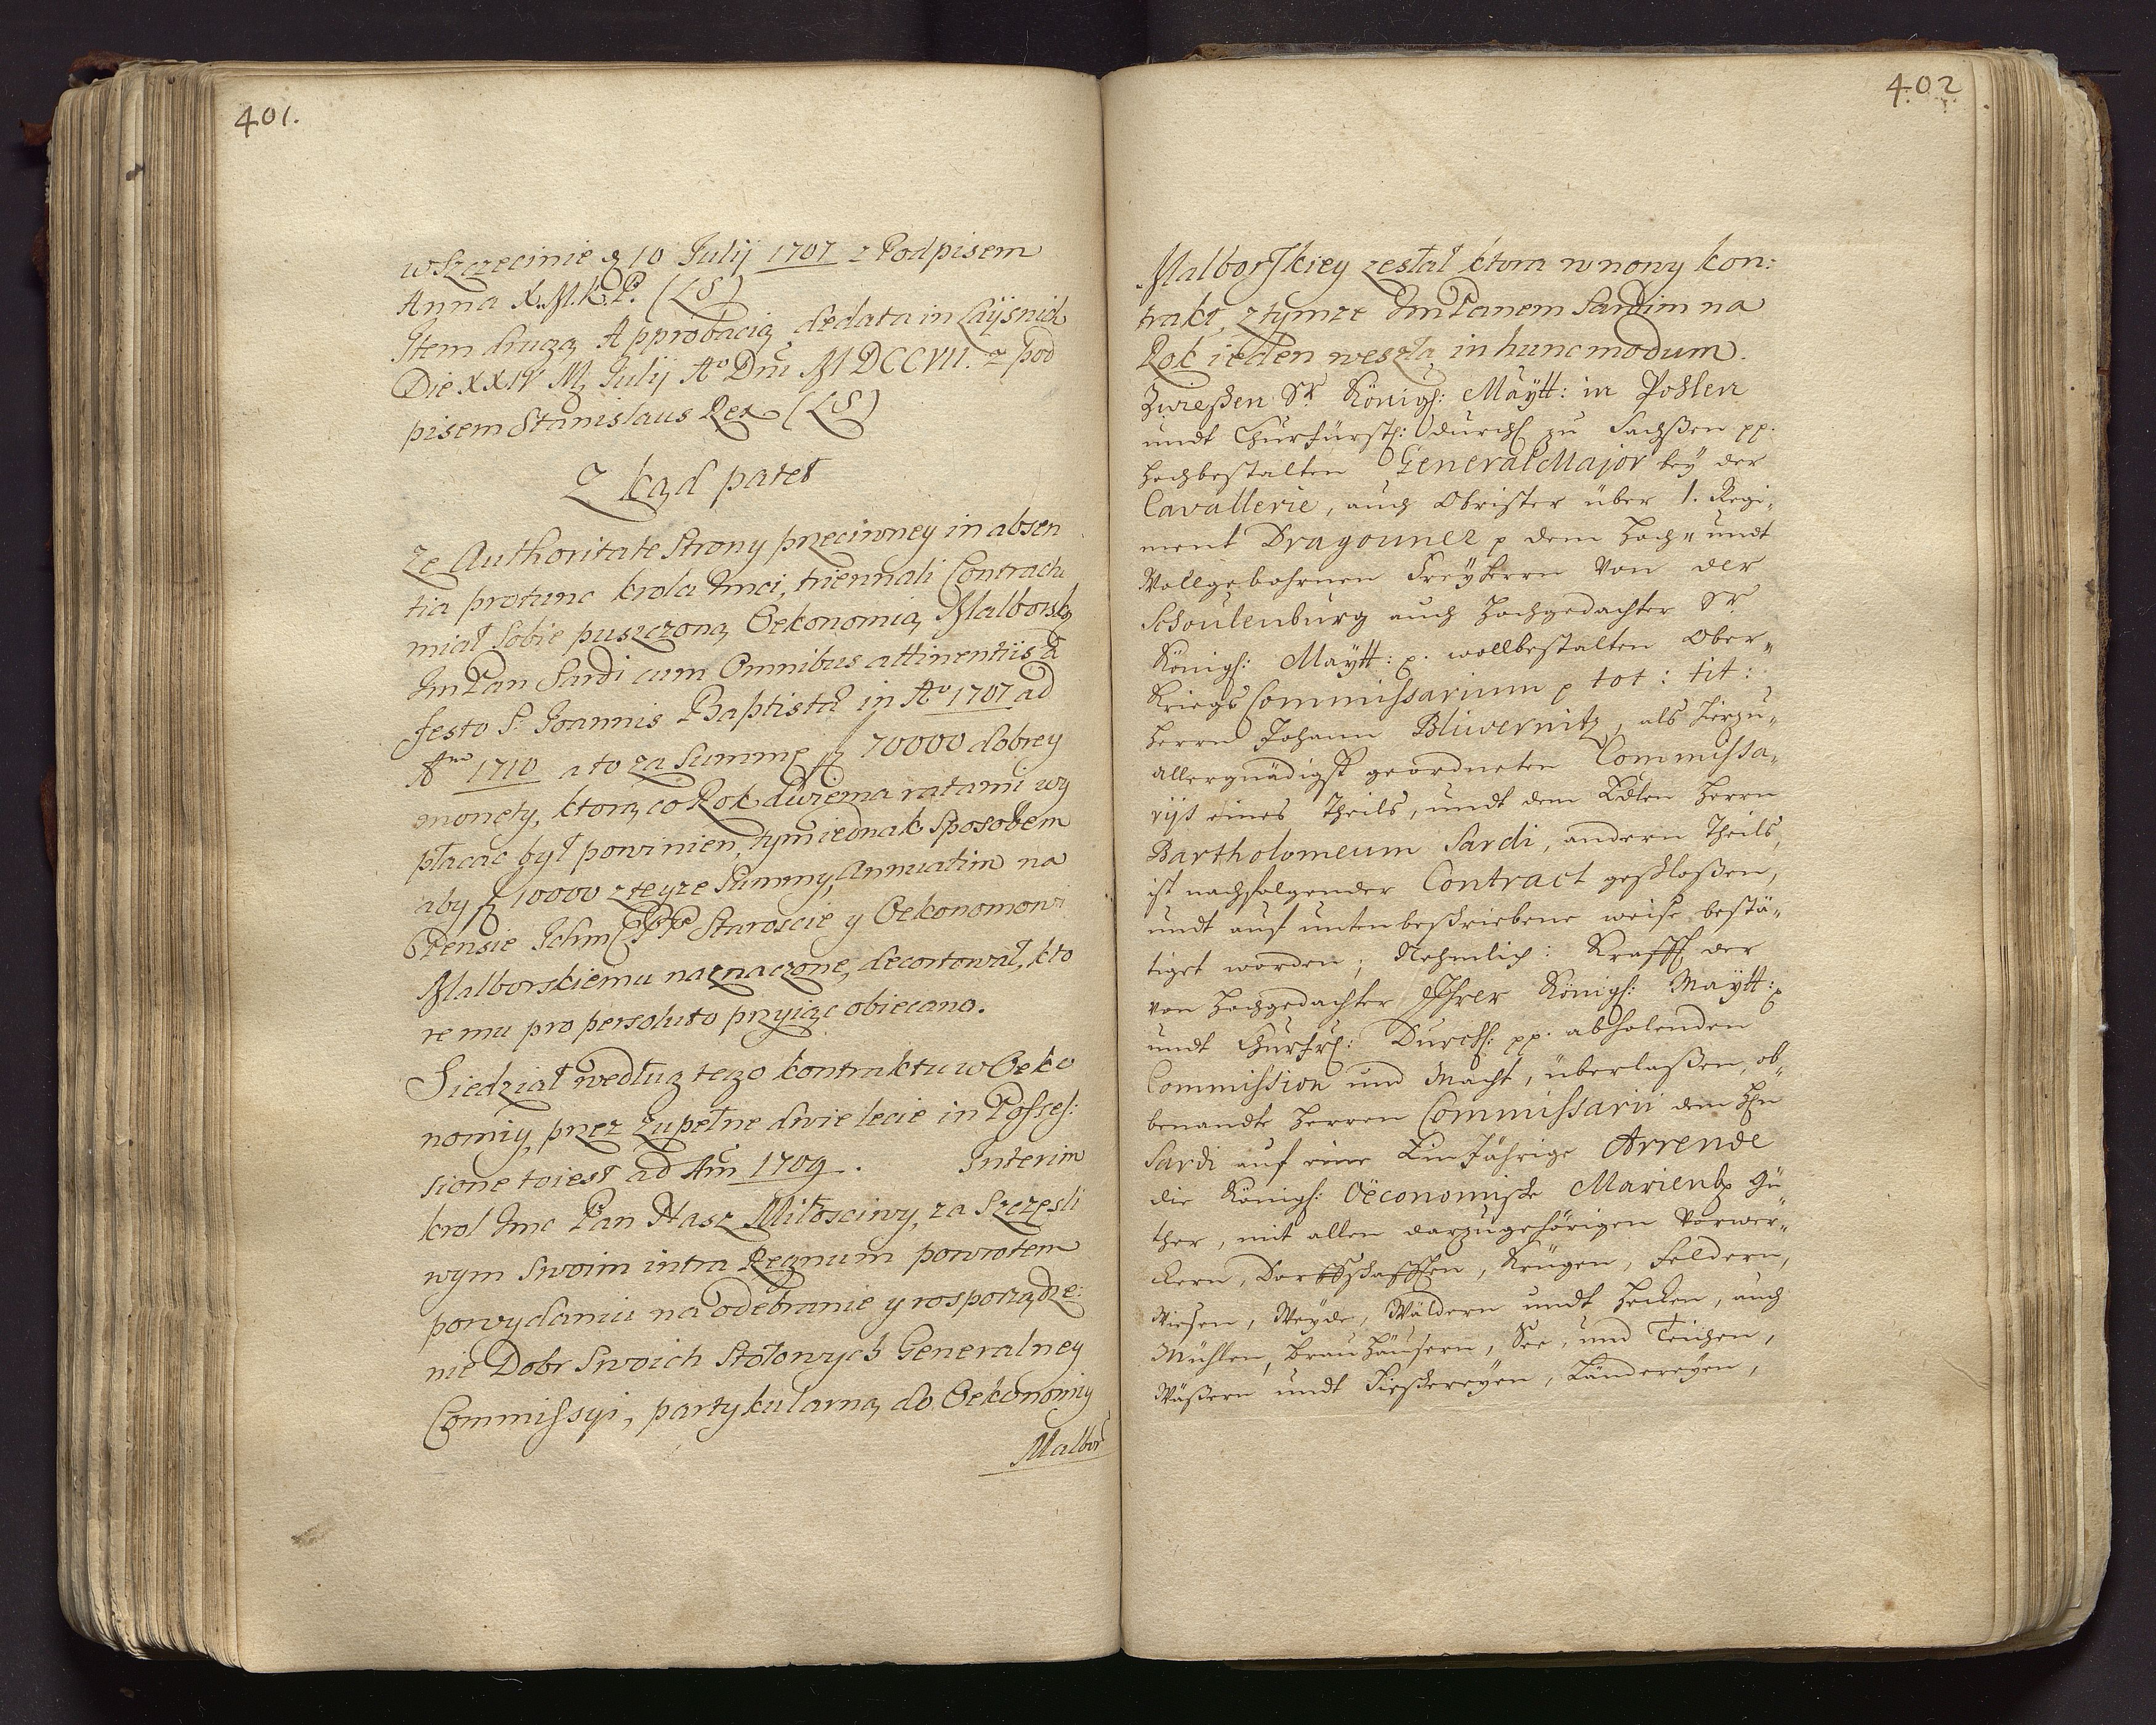 401.
w Szczecinie d 10 Julij 1707 z Podpisem
Anna K. M. K. P. (LS)
Item drugą Approbacią de data in
Die XXIV M. Julij Aº Dni MDCCVII. z pod
pisem Stanislaus Rex (LS)
Z kąd patet
Ze Authoritate Strony przeciwney in absen
tia protunc krola Jmci, triennali Contractu
miał sobie puszczoną Oekonomią Malborską
Jm Pan Sardi cum Omnibus attinentiis a
festo S. Joannis Baptistæ in Aº 1707 ad
Anm 1710 a to za Summę fl 70000 dobrey
monety, ktorą co Rok dwiema ratami wy
płacac był powinien, tym iednak sposobem
aby fl 10000 z teyze Summy, Annuatim na
Pensie Ichm PP Staroscie y Oekonomowi
Malborskiemu naznaczone, decortował, kto
re mu pro persoluto przyiąc obiecano.
Siedział według tego kontraktu w Oeko
nomiy, przez zupełne dwie lecie in Posses:
sione toiest ad Anm 1709. Interim
krol Jmc Pan Nasz Miłosciwy, za Szczęsli
wym Swoim intra Regnum powrotem
po wydaniu na odebranie y rosporządze:
nie Dobr Swoich Stołowych Generalney
Commissyi, partykularną do Oekonomiy
Malbor
402
Malborskiey zesłał ktora w nowy kon:
trakt, z tymze Jm Panem Sardim na
Rok ieden weszła in hunc modum.
Zwießen Sr. Königl: Maÿtt: in Pohlen
undt Churfürstl: Durchl zu Sachßen pp.
Hochbestalten General Major beÿ der
Cavallerie, auch Obrister über 1. Regi„
ment Dragouner p dem Hoch„ undt
Wollgebohrnen Freÿherrn Von der
Schoulenburg auch Hochgedachter Sr.
Königl: Maÿtt: p. wollbestalten Ober„
Kriegs Commissarium p tot: tit:
Herrn Johann Bliwernitz, als hierzu„
allergnädigst geordneten Commissa„
rijs eines Theils, undt dem Edlen Herrn
Bartholomeum Sardi, andern Theils,
ist nachfolgender Contract geschloßen,
undt auf unten beschriebene weise bestä„
tiget worden; Nehmlich: Krafft der
von Hochgedachter Ihrer Königl: Maÿtt: p
undt Churfrl: Durchl: pp. abholenden
Commission und Macht, überlaßen, ob„
benandte Herren Commissarii dem Hn
Sardi auf eine Ein Jährige Arrende
die Königl: Oëconomische Marienb. Gü
ther, mit allen darzugehörigen Vorwer„
ckern, Dorffschafften, Krügen, Feldern,
Wiesen, Weyde, Wäldern undt Hecken, auch
Mühlen, Brau Häusern, See, und Teichen,
Wäßern undt Fischereÿen, Ländereÿen,